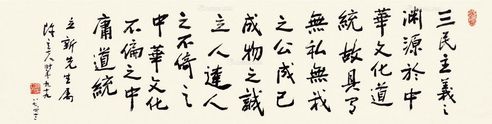 三民主義之
渊源於中
華文化道
統故具有
無私無我
之公成己
成物之誠
立人達人
之不倚之
中華文化
不偏之中
庸道統
立新先生屬
陳立夫時年九十九